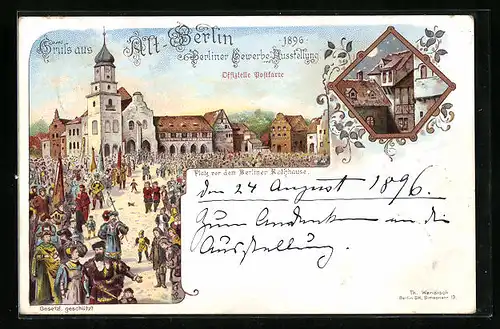 Gruß aus Alt-Berlin 1896
Berliner Gewerbe-Ausstellung
Offizielle Postkarte
Platz vor dem Berliner Rathhause.
den 24 August 1896.
Zum Andenken an die
Ausstellung.
Gesetzl. geschützt
Th. Wendisch
Berlin SW,